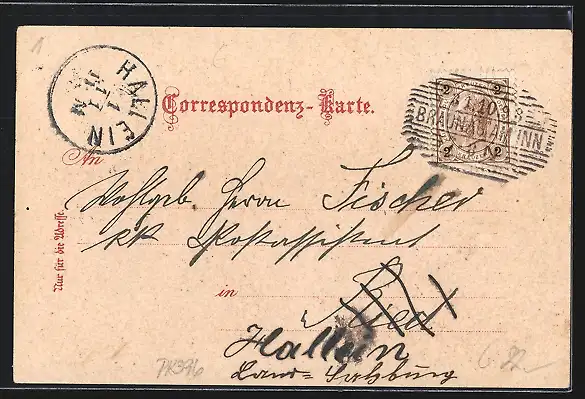 HALLEIN
Correspondenz-Karte.
2 2
BRAUNAU AM INN
2 2
An
Wohlgeb Herrn Fischer
kk Postassistent
Nur für die Adresse.
in Ried
Hallein
Land= Salzburg
PK396